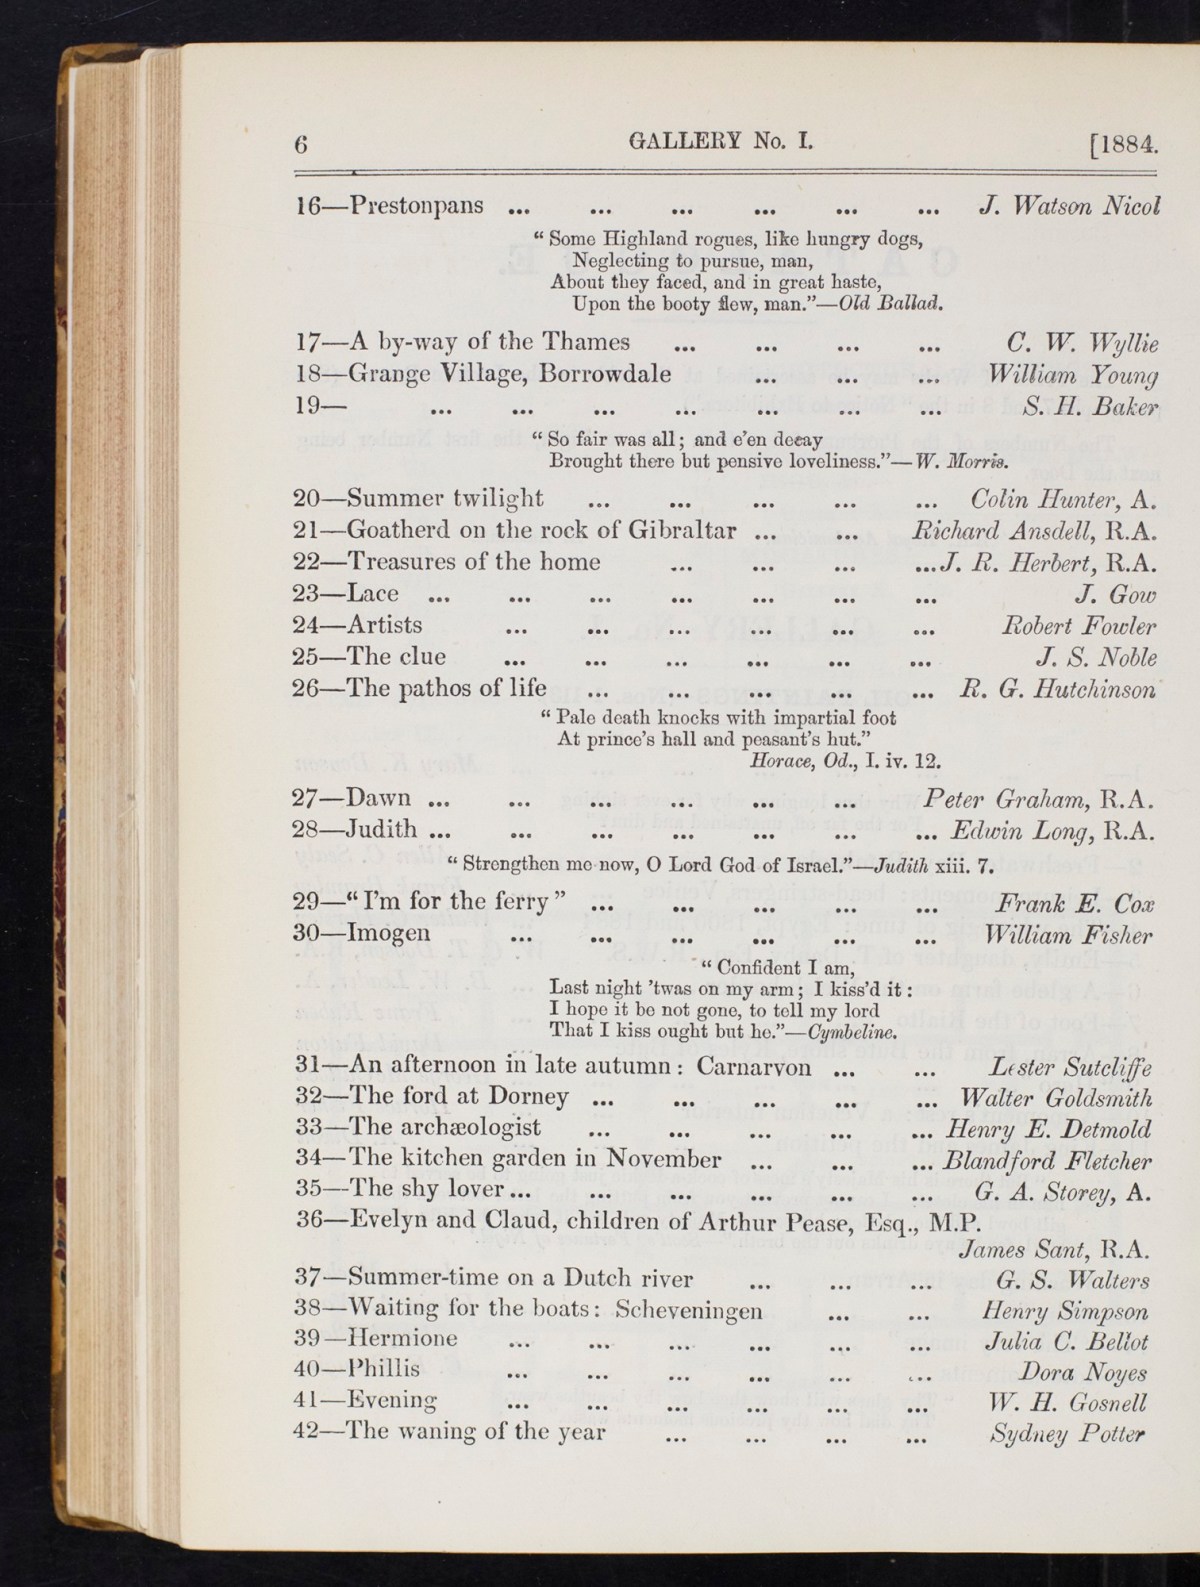 6 GALLERY No. I. [1884.
16—Prestonpans ... ... ... ... ... ... J. Watson Nicol
“ Some Highland rogues, like hungry dogs,
Neglecting to pursue, man,
About they faced, and in great haste,
Upon the booty flew, man.”—Old Ballad.
17—A by-way of the Thames ... ... ... ... C. W. Wyllie
18—Grange Village, Borrowdale ... ... ... William Young
19— ... ... ... ... ... ... ... S. H. Baker
“ So fair was all ; and e’en decay
Brought there but pensive loveliness.”—W. Morris.
20—Summer twilight ... ... ... ... ... Colin Hunter, A.
21—Goatherd on the rock of Gibraltar ... ... Richard Ansdell, R.A.
22—Treasures of the home ... ... ... ... J. R. Herbert, R.A.
23—Lace ... ... ... ... ... ... ... J. Gow
24—Artists ... ... ... ... ... ... Robert Fowler
25—The clue ... ... ... ... ... ... J. S. Noble
26—The pathos of life ... ... ... ... ... R. G. Hutchinson
“ Pale death knocks with impartial foot
At prince’s hall and peasant’s hut.”
Horace, Od., I. iv. 12.
27—Dawn ... ... ... ... ... ... Peter Graham, R.A.
28—Judith ... ... ... ... ... ... ... Edwin Long, R.A.
“ Strengthen me now, O Lord God of Israel.”—Judith xiii. 7.
29—“ I’m for the ferry ” ... ... ... ... ... Frank E. Cox
30—Imogen ... ... ... ... ... ... William Fisher
“ Confident I am,
Last night ’twas on my arm ; I kiss’d it :
I hope it be not gone, to tell my lord
That I kiss ought but he.”—Cymbeline.
31—An afternoon in late autumn : Carnarvon ... ... Lester Sutcliffe
32—The ford at Dorney ... ... ... ... ... Walter Goldsmith
33—The archæologist ... ... ... ... ... Henry E. Detmold
34—The kitchen garden in November ... ... ... Blandford Fletcher
35—The shy lover ... ... ... ... ... ... G. A. Storey, A.
36—Evelyn and Claud, children of Arthur Pease, Esq., M.P.
James Sant, R.A.
37—Summer-time on a Dutch river ... ... ... G. S. Walters
38—Waiting for the boats : Scheveningen ... ... Henry Simpson
39—Hermione ... ... ... ... ... ... Julia C. Beltot
40—Phillis ... ... ... ... ... ... Dora Noyes
41—Evening ... ... ... ... ... ... W. H. Gosnell
42—The waning of the year ... ... ... ... Sydney Potter